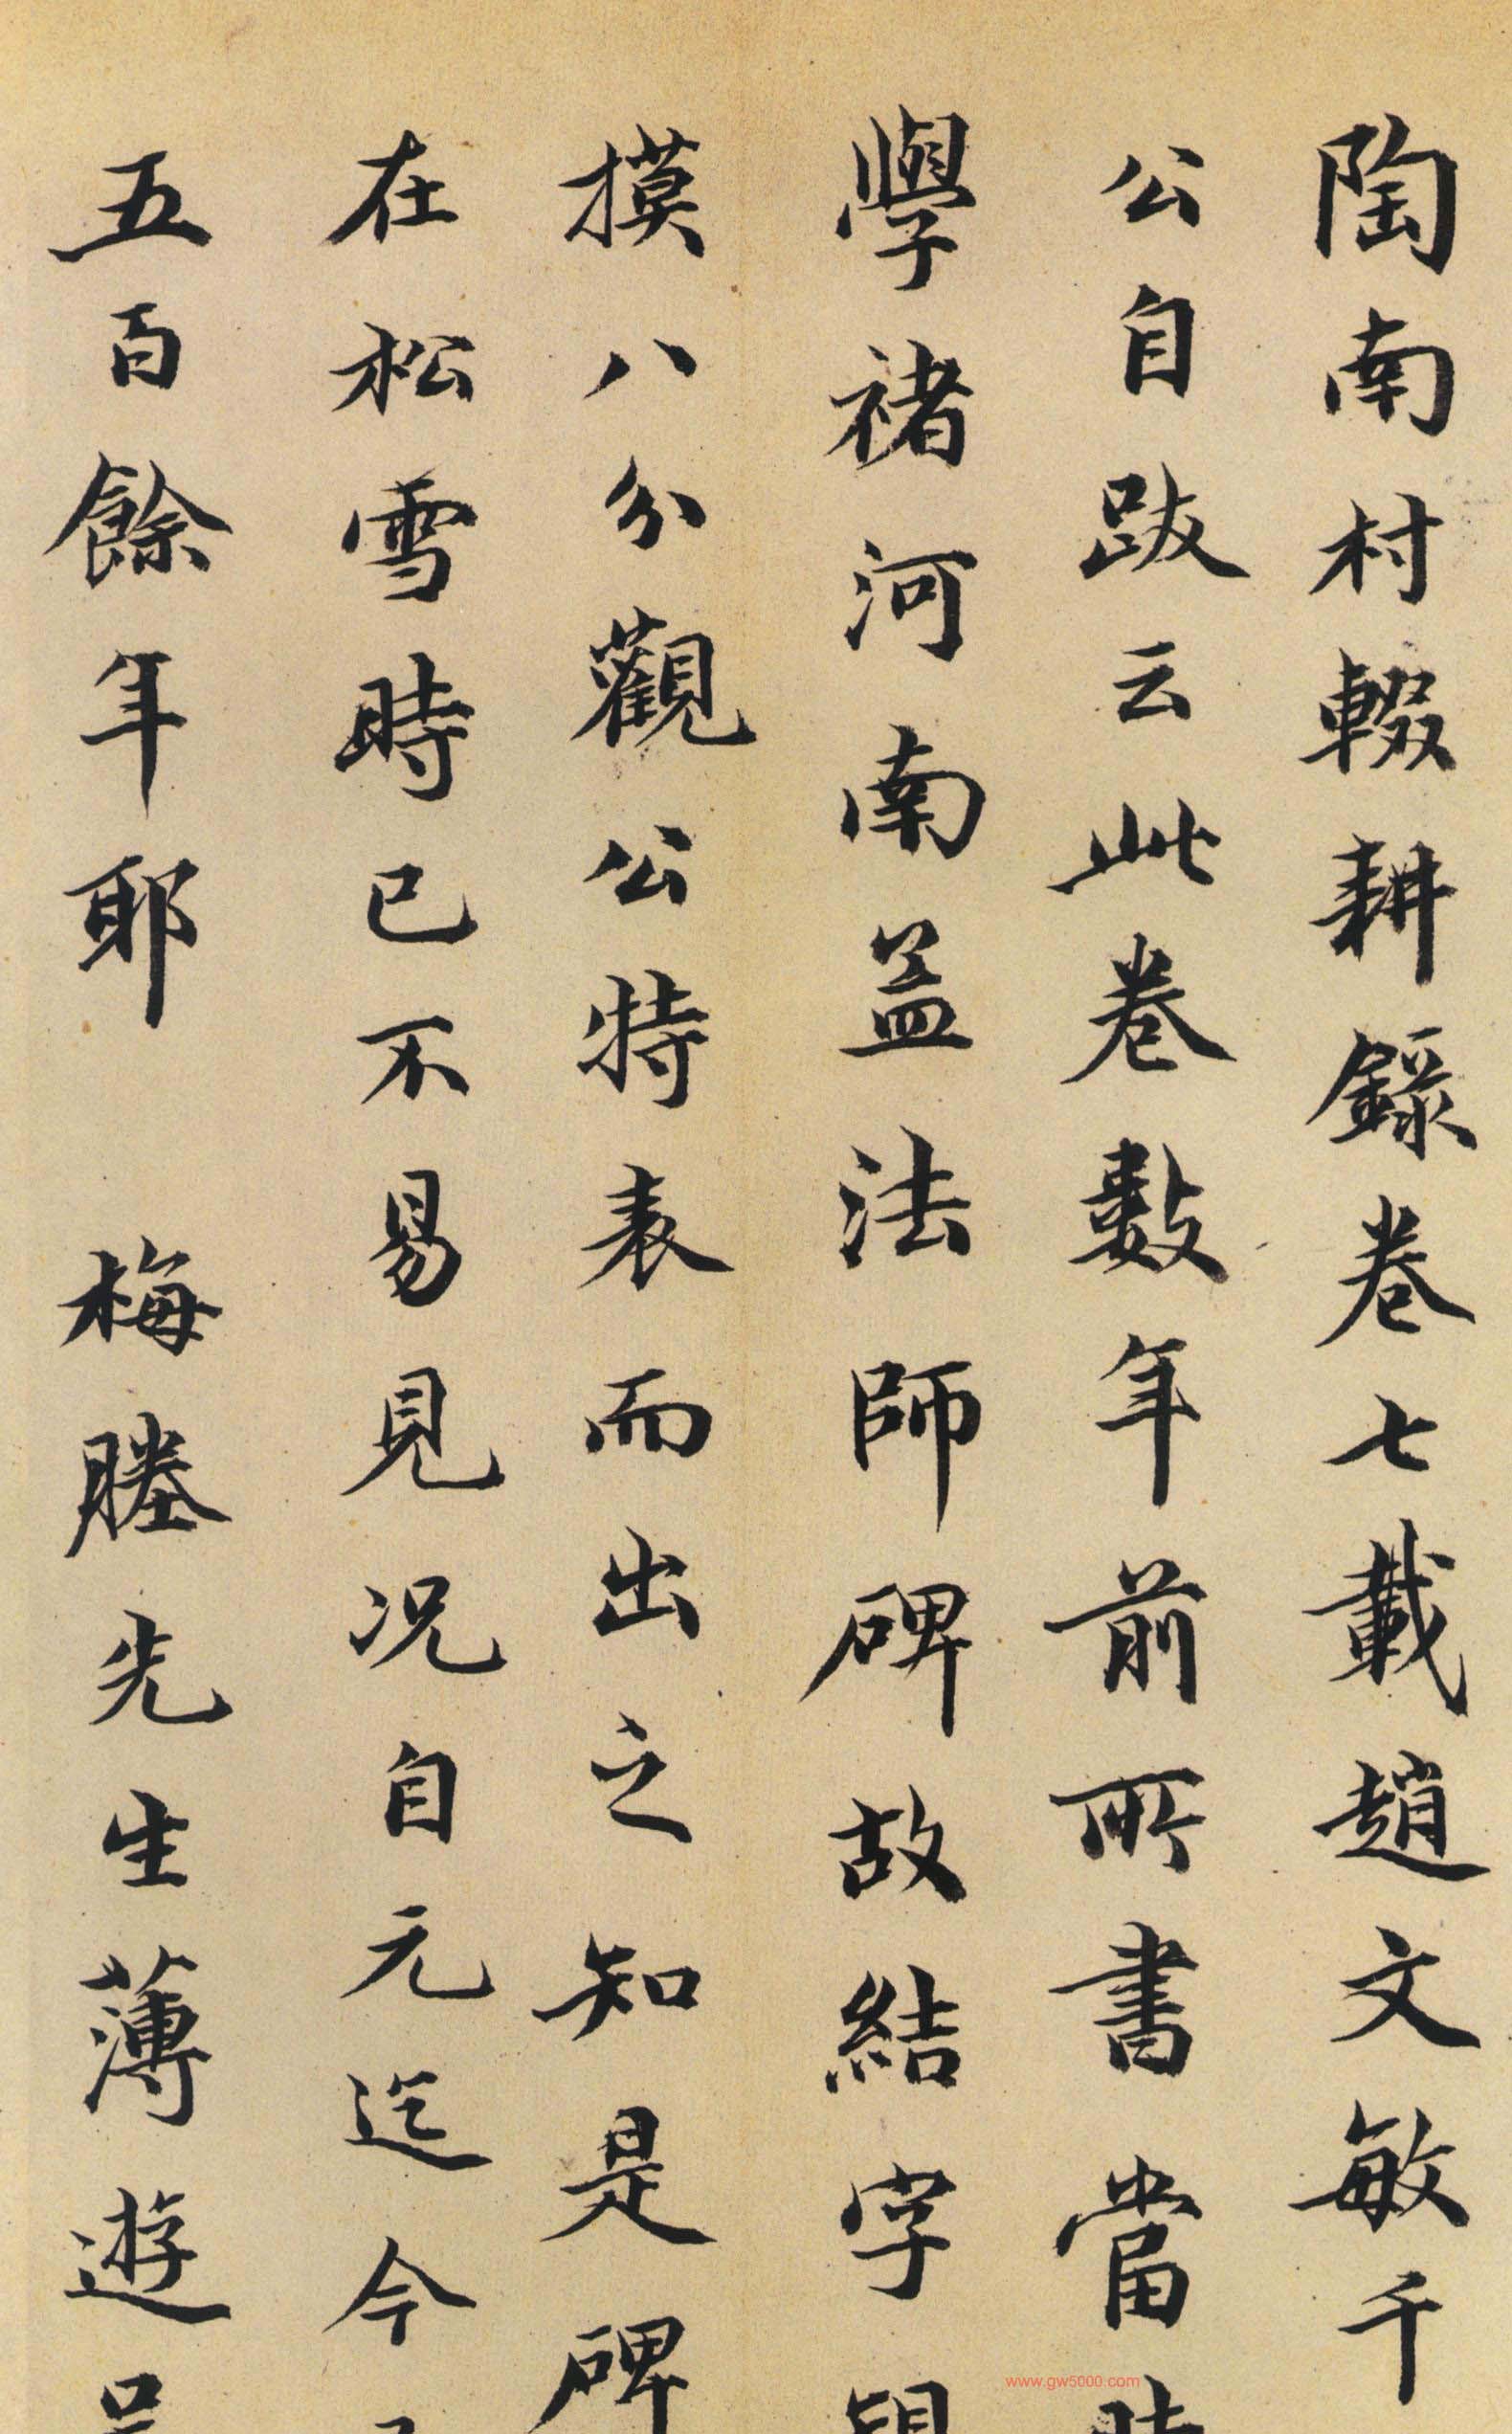 陶南村輟耕錄卷七載趙文敏千
公自跋云此卷數年前所書當時
學褚河南孟法師碑故結字規
摸八分觀公特表而出之知是碑
在松雪時已不易見況自元迄今
五百餘年耶　梅塍先生薄遊吳
www.gw5000.com